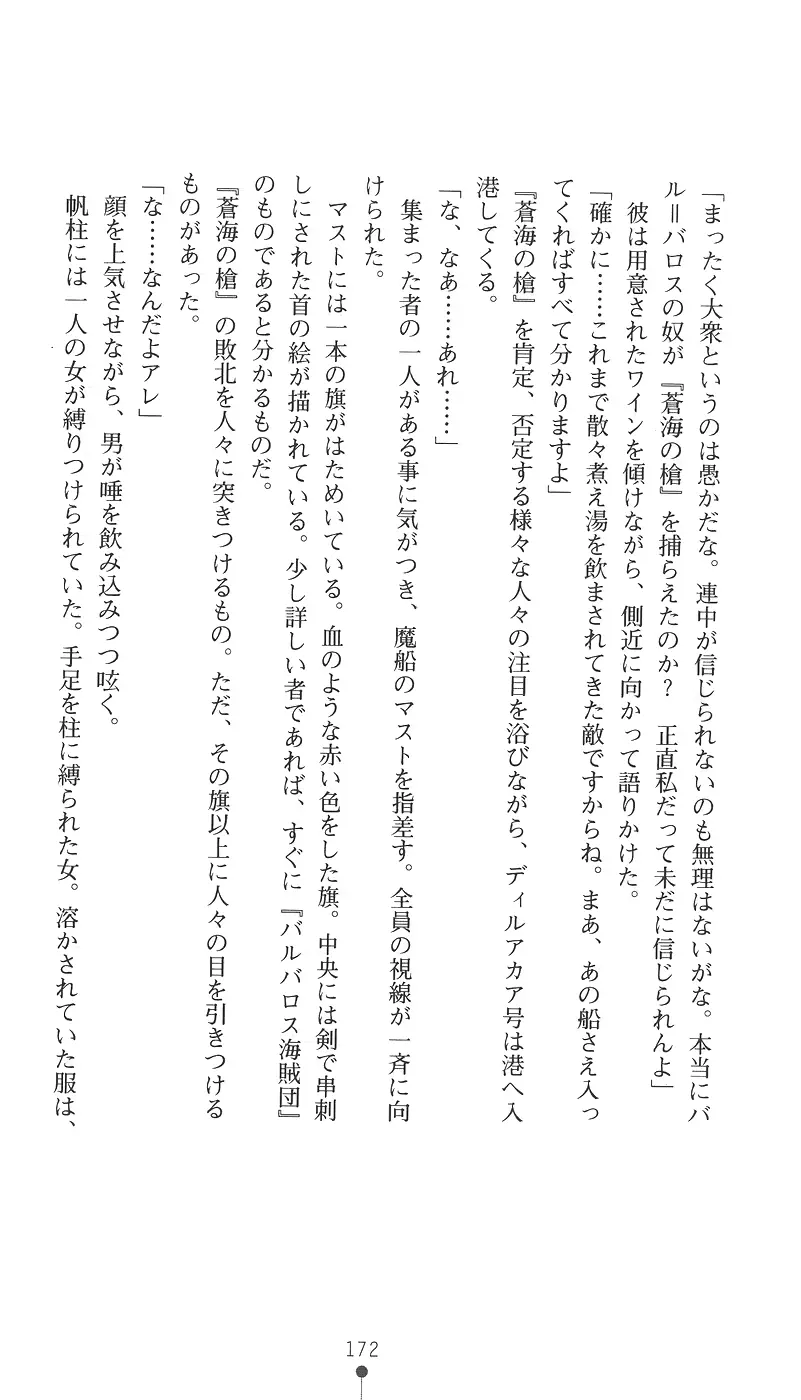 「まったく大衆というのは愚かだな。連中が信じられないのも無理はないがな。本当にバ
ル＝バロスの奴が『蒼海の槍』を捕らえたのか？　正直私だって未だに信じられんよ」
　彼は用意されたワインを傾けながら、側近に向かって語りかけた。
「確かに……これまで散々煮え湯を飲まされてきた敵ですからね。まあ、あの船さえ入っ
てくればすべて分かりますよ」
『蒼海の槍』を肯定、否定する様々な人々の注目を浴びながら、ディルアカア号は港へ入
港してくる。
「な、なあ……あれ……」
　集まった者の一人がある事に気がつき、魔船のマストを指差す。全員の視線が一斉に向
けられた。
　マストには一本の旗がはためいている。血のような赤い色をした旗。中央には剣で串刺
しにされた首の絵が描かれている。少し詳しい者であれば、すぐに『バルバロス海賊団』
のものであると分かるものだ。
『蒼海の槍』の敗北を人々に突きつけるもの。ただ、その旗以上に人々の目を引きつける
ものがあった。
「な……なんだよアレ」
　顔を上気させながら、男が唾を飲み込みつつ呟く。
　帆柱には一人の女が縛りつけられていた。手足を柱に縛られた女。溶かされていた服は、
172